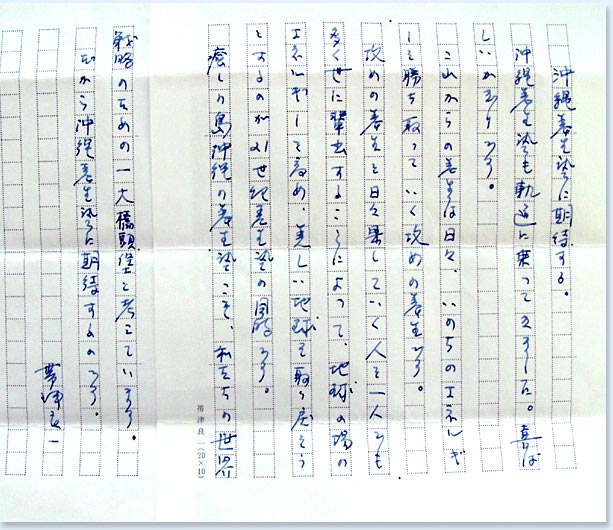 沖縄養生塾に期待する。
沖縄養生塾も軌道に乗ってきました。喜ば
しいかぎりです。
これからの養生は日々、いのちのエネルギ
ーを勝ち取っていく攻めの養生です。
攻めの養生を日々果していく人を一人でも
多く世に輩出することによって、地球の場の
エネルギーを高め、美しい地球を取り戻そう
とするのが21世紀養生塾の目的です。
癒しの島沖縄の養生塾こそ、私たちの世界
帯津良一(20×10)
戦略のための一大橋頭堡と考えています。
だから沖縄養生塾に期待するのです。
帯津良一